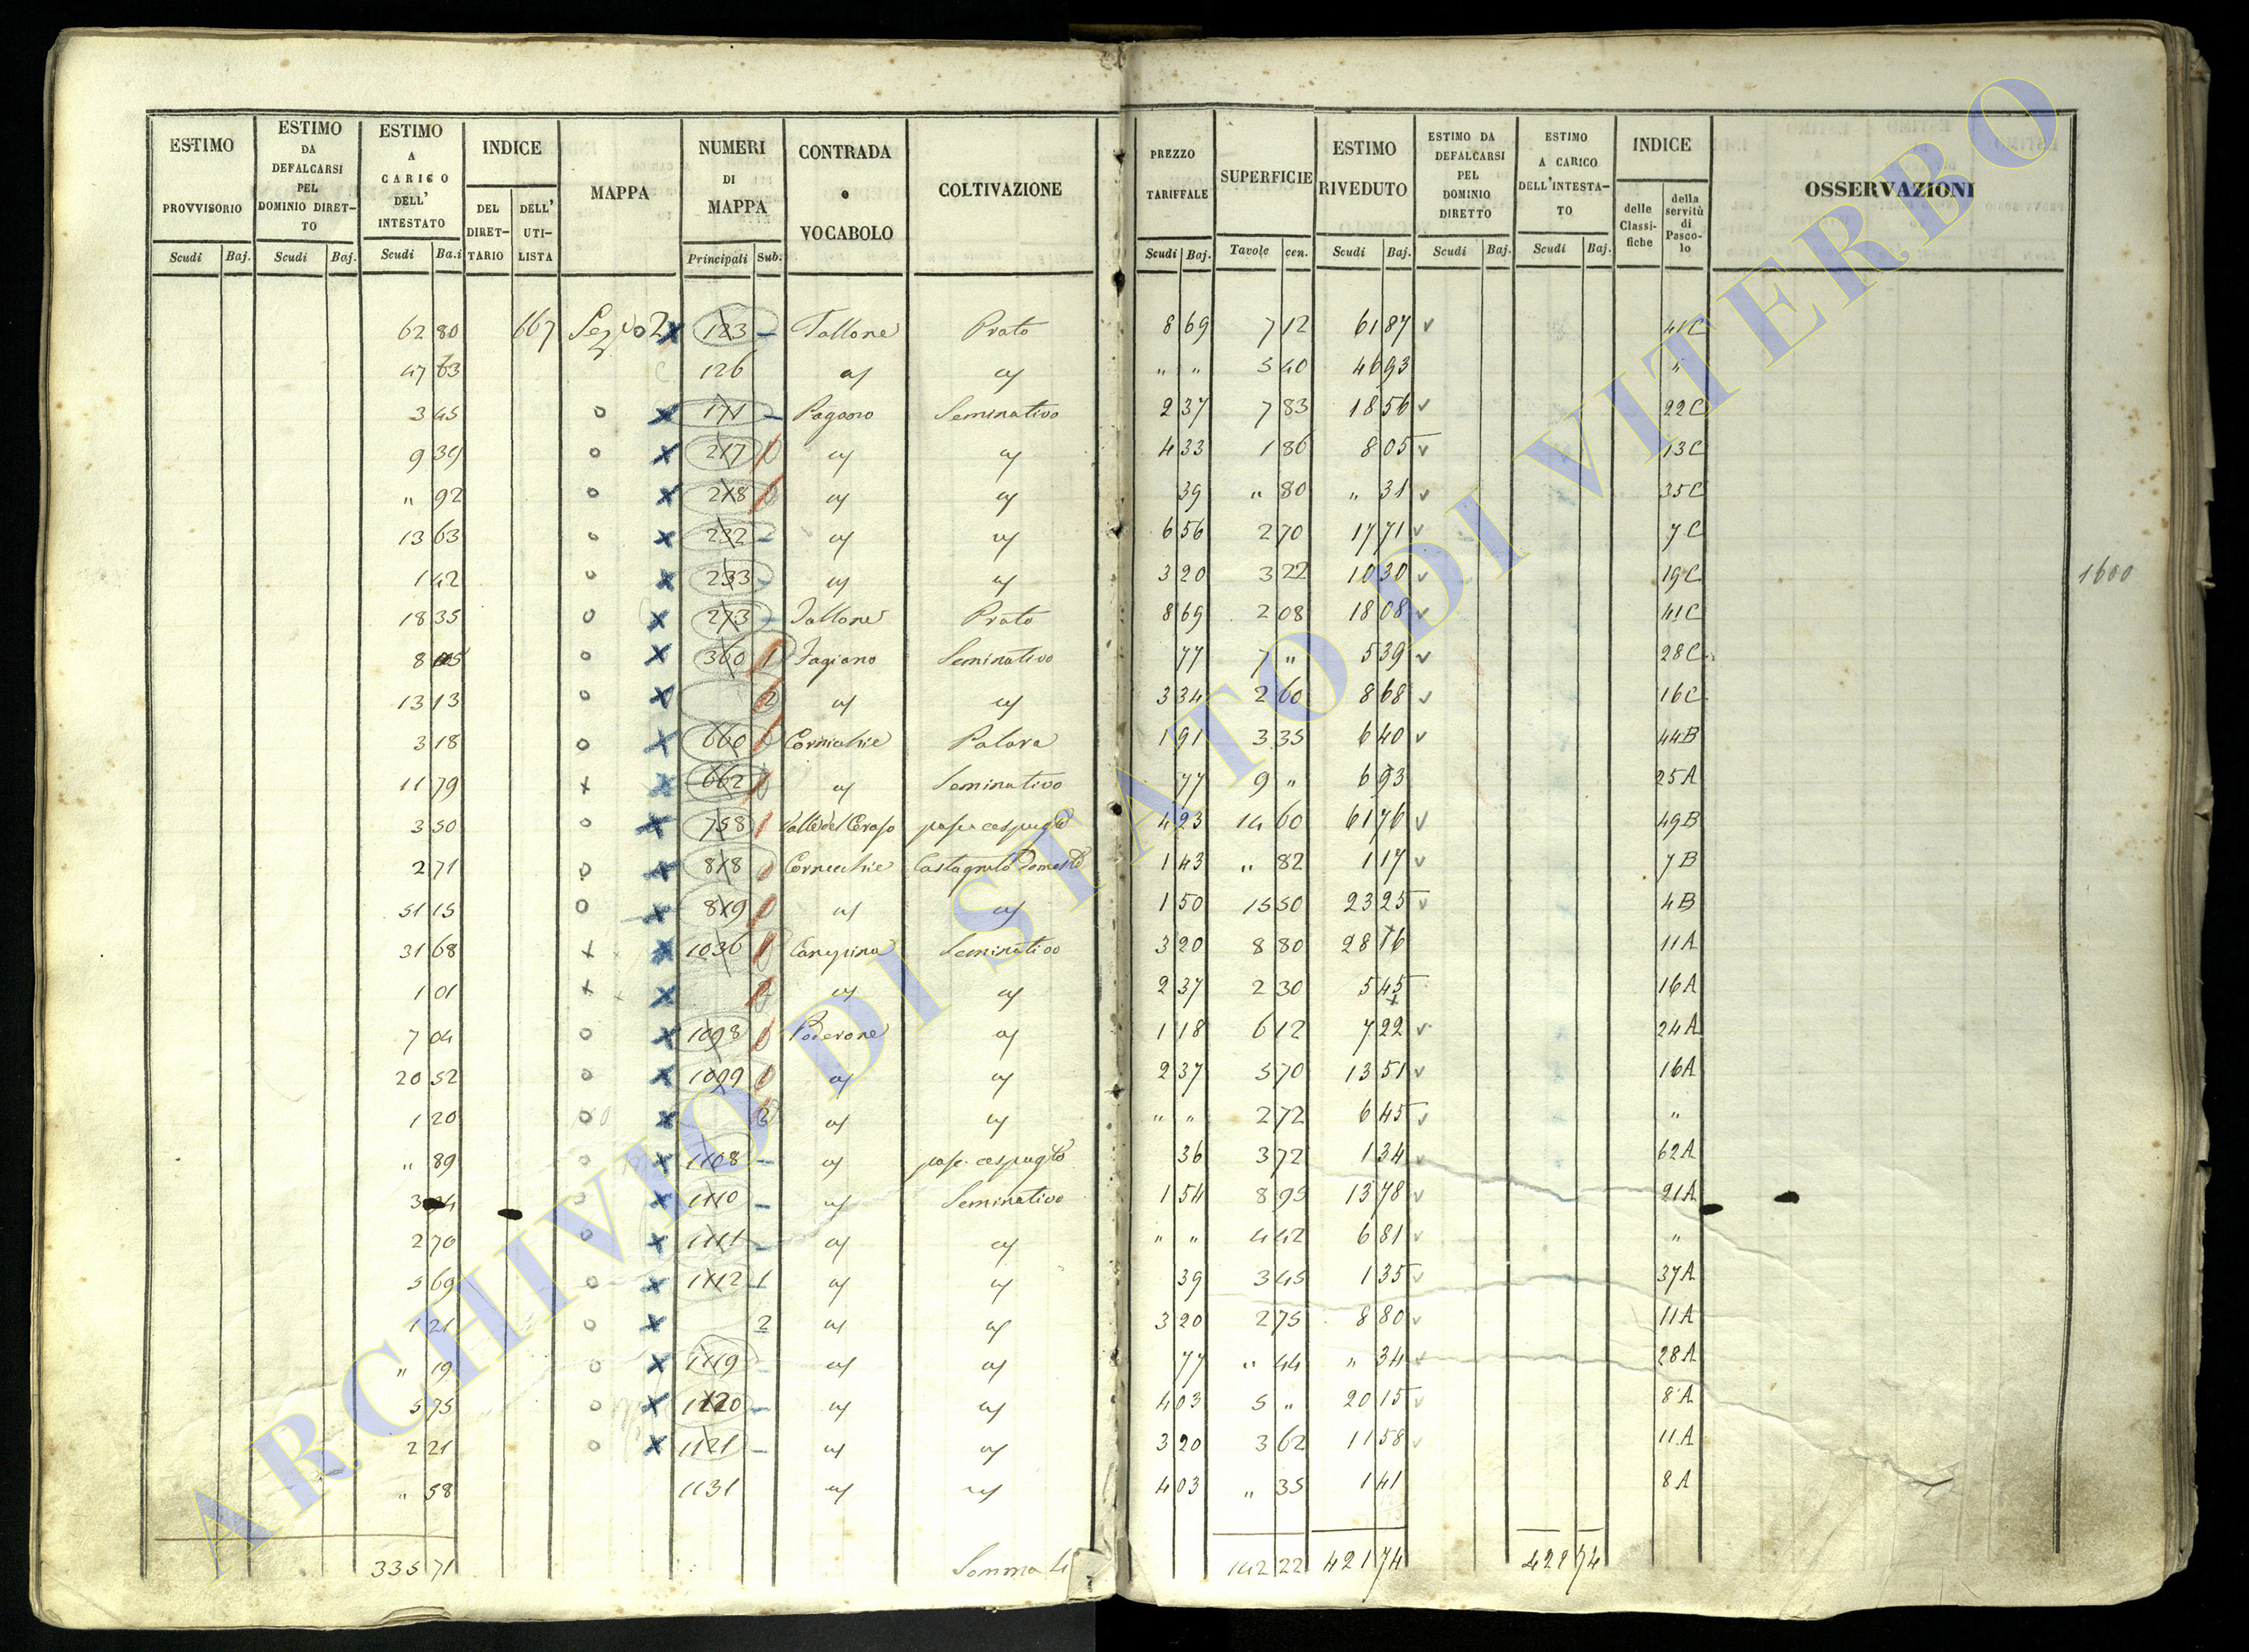 ESTIMO PROVVISORIO Scudi Baj.
ESTIMO DA DEFALCARSI PEL DOMINIO DIRET- TO Scudi Baj.
ESTIMO A CARICO DELL' INTESTATO Scudi Ba.i
INDICE DEL DIRET- TARIO DELL' UTI- LISTA
MAPPA
NUMERI DI MAPPA Principali Sub.
CONTRADA o VOCABOLO
COLTIVAZIONE
PREZZO TARIFFALE Scudi Baj.
SUPERFICIE Tavole cen.
ESTIMO RIVEDUTO Scudi Baj.
ESTIMO DA DEFALCARSI PEL DOMINIO DIRETTO Scudi Baj.
ESTIMO A CARICO DELL'INTESTA- TO Scudi Baj.
INDICE delle Classi- fiche della servitù di Pasco- lo
OSSERVAZIONI
62 80 667 123 – Tallone Prato 8 69 7 12 61 87 41C
47 126 " " 5 40 46 93 "
3 45 171 – Pagano Seminativo 2 37 7 83 18 56 22C
9 39 217 4 33 1 86 8 05 13C
" 92 218 39 " 80 " 31 35C
13 63 232 – 6 56 2 70 17 71 7C
1 42 233 – 3 20 3 22 10 30 19C
18 35 273 – Tallone Prato 8 69 2 08 18 08 41C
8 360 1 Fagiano Seminativo 77 7 " 5 39 28C
13 13 2 3 34 2 60 8 68 16C
3 18 660 1 91 3 35 6 40 44B
11 79 662 Seminativo 77 9 " 6 93 25A
3 50 758 1 Valle del Ceraso 4 23 14 60 61 76 49B
2 71 818 Cornecchie Castagneto Domestº 1 43 " 82 1 17 7B
51 15 819 1 50 15 50 23 25 4B
31 68 1036 1 Canepina Seminativo 3 20 8 80 28 16 11A
1 01 2 2 37 2 30 5 45 16A
7 04 1098 Poderone 1 18 6 12 7 22 24A
20 52 1099 1 2 37 5 70 13 51 16A
1 20 2 " " 2 72 6 45 "
" 89 1108 – 36 3 72 1 34 62A
1110 – Seminativo 1 54 8 95 13 78 21A
2 70 1111 – " " 4 42 6 81 "
5 69 1112 1 39 3 45 1 35 37A
1 21 2 3 20 2 75 8 80 11A
" 19 1119 – 77 " 44 " 34 28A
5 75 1120 – 4 03 5 " 20 15 8A
2 21 1121 – 3 20 3 62 11 58 11A
" 58 1131 4 03 " 35 1 41 8A
335 71 Somma 142 22 421 74 421 74
1600
ARCHIVIO DI STATO DI VITERBO